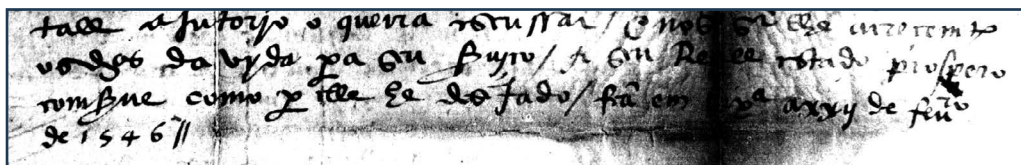 tall aJutorjo o queira escussar / E nos sor lhe acrecemte
os djas da vyda pa seu serujço / & seu Reall estado prospero
comserue como per elle he desJado / fta em a xxij de feuro
de 1546 //